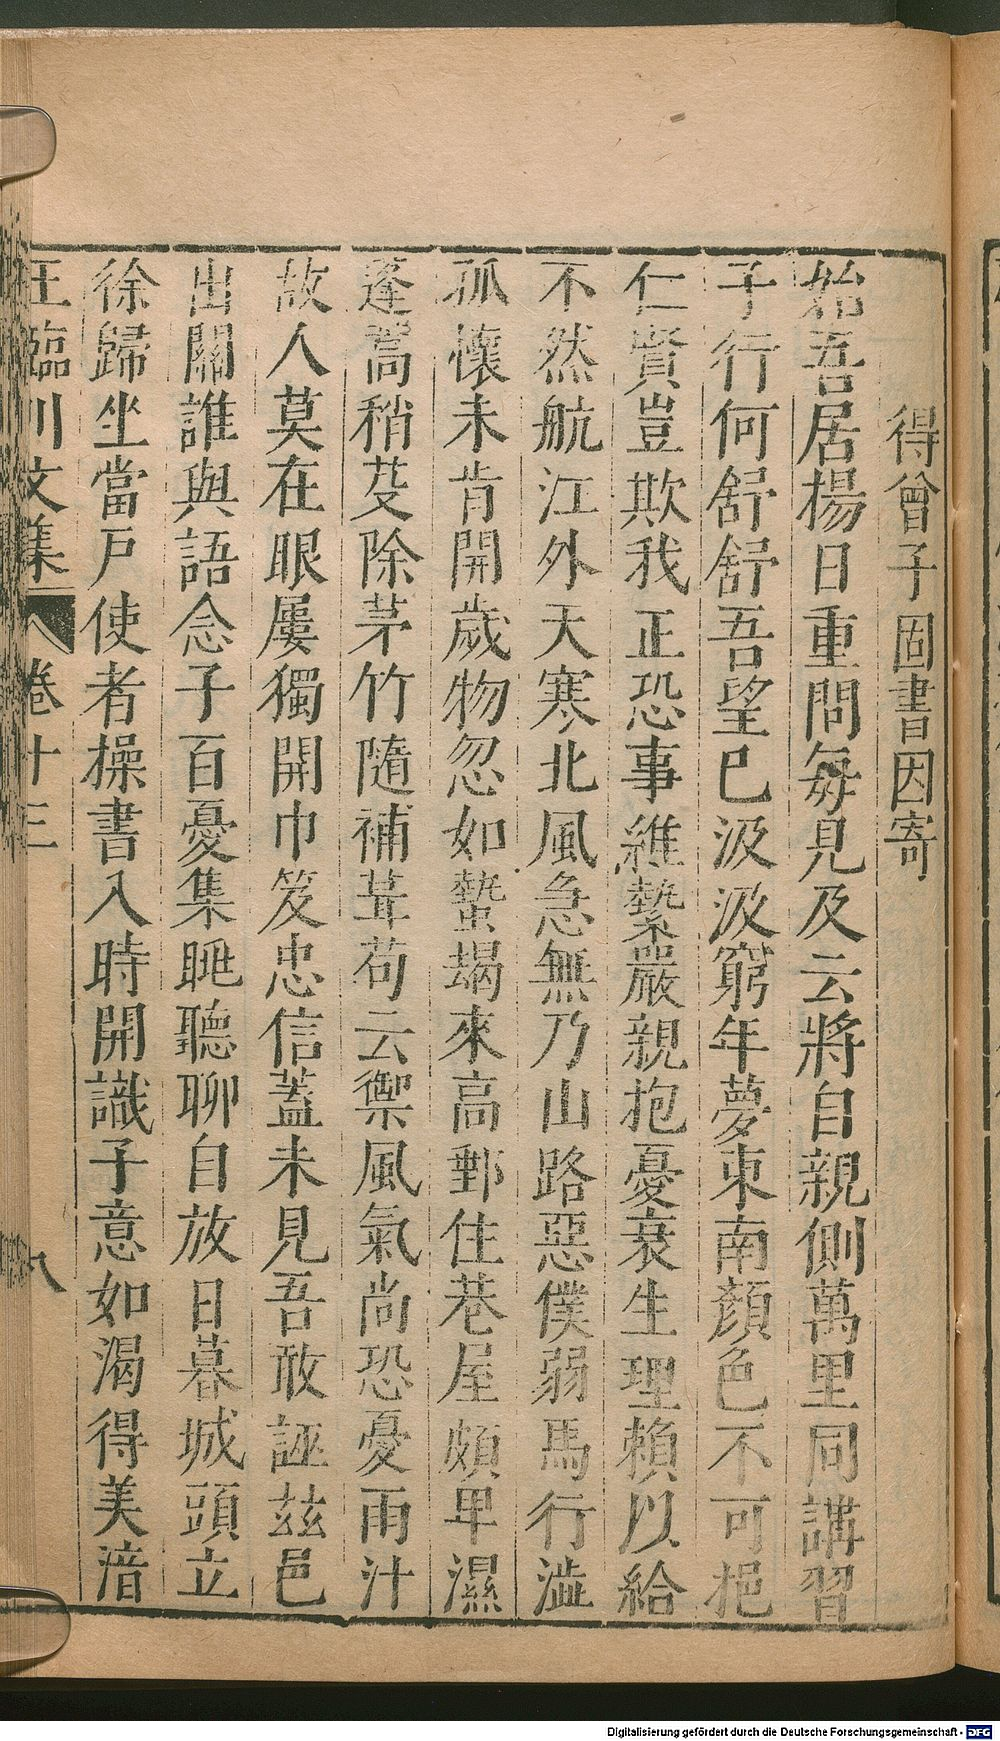 得曾子固書因寄
始吾居揚日重問每見及云將自親側萬里同講習
子行何舒舒吾望已汲汲窮年夢東南顏色不可挹
仁賢豈欺我正恐事維縶嚴親抱憂衰生理賴以給
不然航江外天寒北風急無乃山路惡僕弱馬行澁
孤懷未肯開歲物忽如蟄朅來高郵住巷屋頗卑濕
蓬蒿稍芟除茅竹隨補葺苟云禦風氣尚恐憂雨汁
故人莫在眼屢獨開巾笈忠信蓋未見吾敢誣茲邑
出關誰與語念子百憂集眺聽聊自放日暮城頭立
徐歸坐當戶使者操書入時開識子意如渴得美湆
王臨川文集 卷十三 八
Digitalisierung gefördert durch die Deutsche Forschungsgemeinschaft - DFG